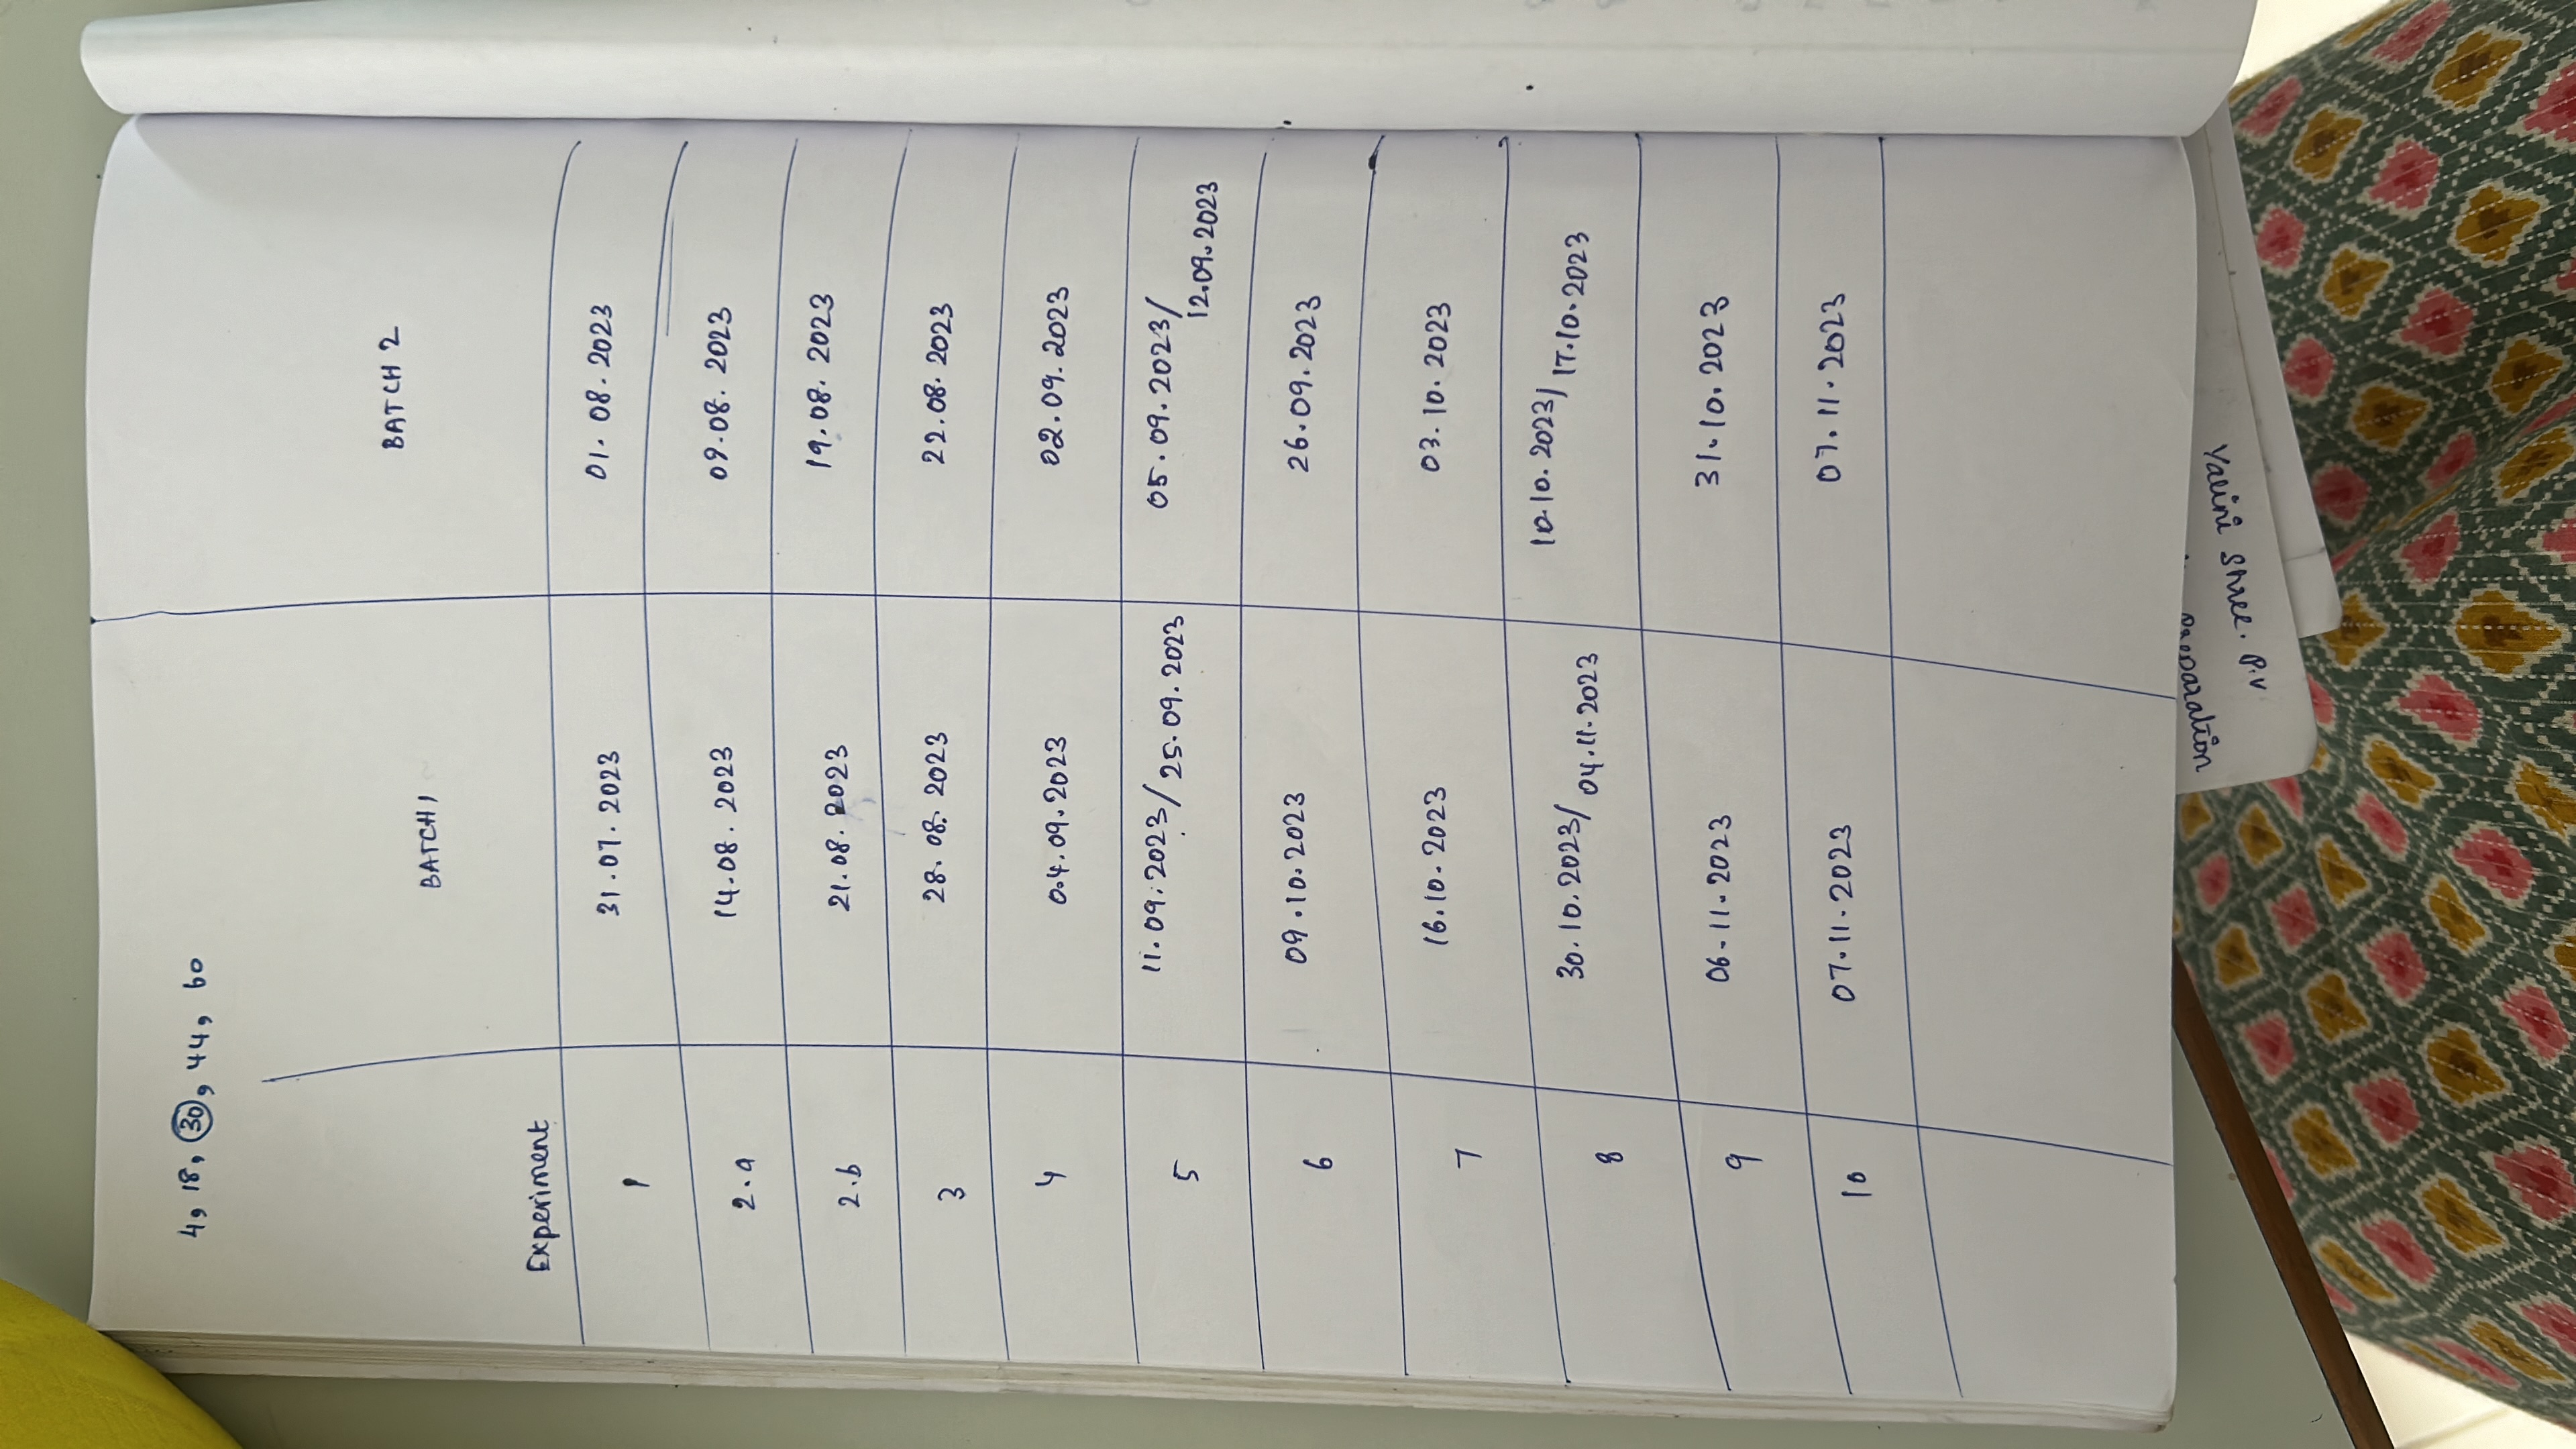 4, 18, 30, 44, 60
BATCH 1 BATCH 2
Experiment
1 31.07.2023 01.08.2023
2.a 14.08.2023 09.08.2023
2.b 21.08.2023 19.08.2023
3 28.08.2023 22.08.2023
4 04.09.2023 02.09.2023
5 11.09.2023/25.09.2023 05.09.2023/
12.09.2023
6 09.10.2023 26.09.2023
7 16.10.2023 03.10.2023
8 30.10.2023/04.11.2023 10.10.2023/17.10.2023
9 06.11.2023 31.10.2023
10 07.11.2023 07.11.2023
Yalini Shree. P.V
Preparation